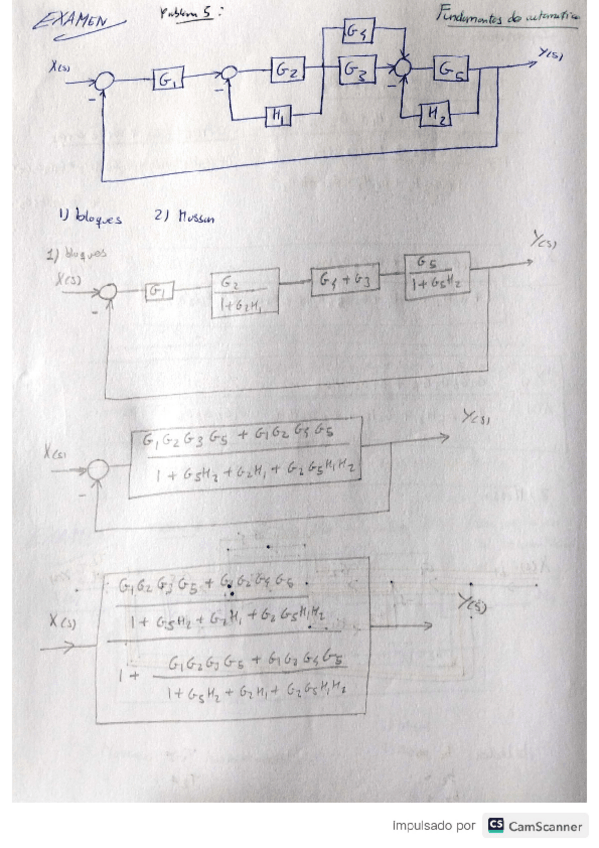 EXAMEN Problem 5: Fundamentos de automatica
G4
X(s) G1 G2 G3 G5 Y(s)
- - -
H1 H2
1) bloques 2) Mason
1) bloques
X(s) G1 G2 / 1+G2H1 G4+G3 G5 / 1+G5H2 Y(s)
-
X(s) G1G2G3G5 + G1G2G4G5 Y(s)
1+G5H2+G2H1+G2G5H1H2
-
G1G2G3G5 + G1G2G4G5
1+G5H2+G2H1+G2G5H1H2
X(s) Y(s)
1+ G1G2G3G5 + G1G2G4G5
1+G5H2+G2H1+G2G5H1H2
Impulsado por CS CamScanner